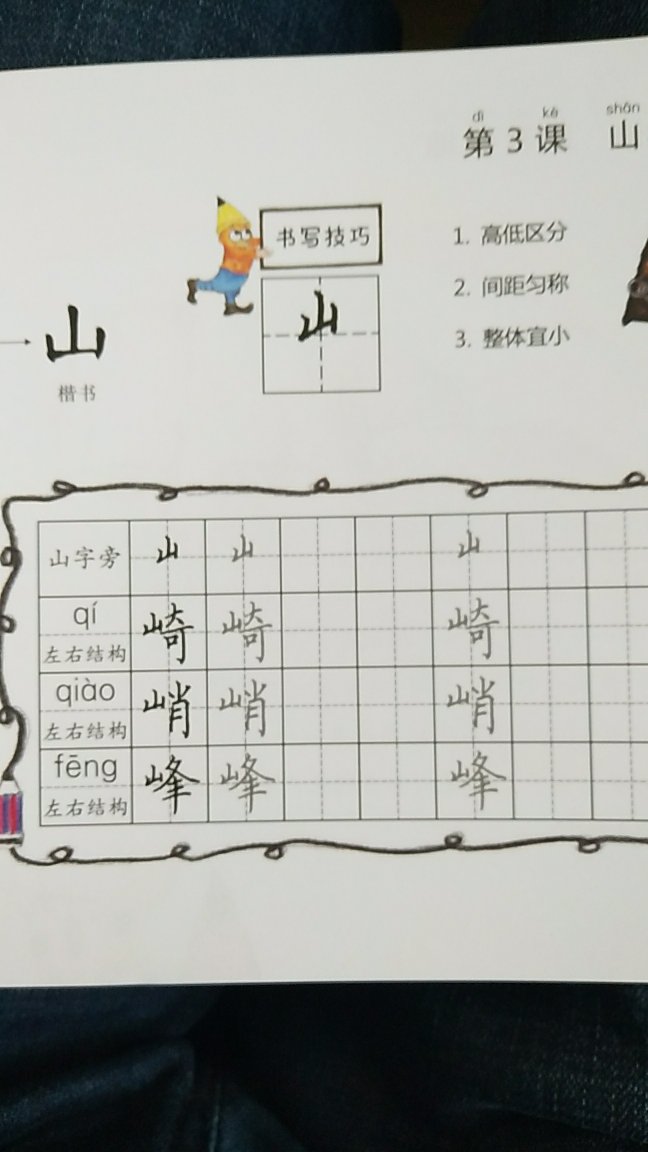 dì kè shān
第3课 山
书写技巧
山
1. 高低区分
2. 间距匀称
3. 整体宜小
山
楷书
山字旁 山 山 山
qí
左右结构 崎 崎 崎
qiào
左右结构 峭 峭 峭
fēng
左右结构 峰 峰 峰